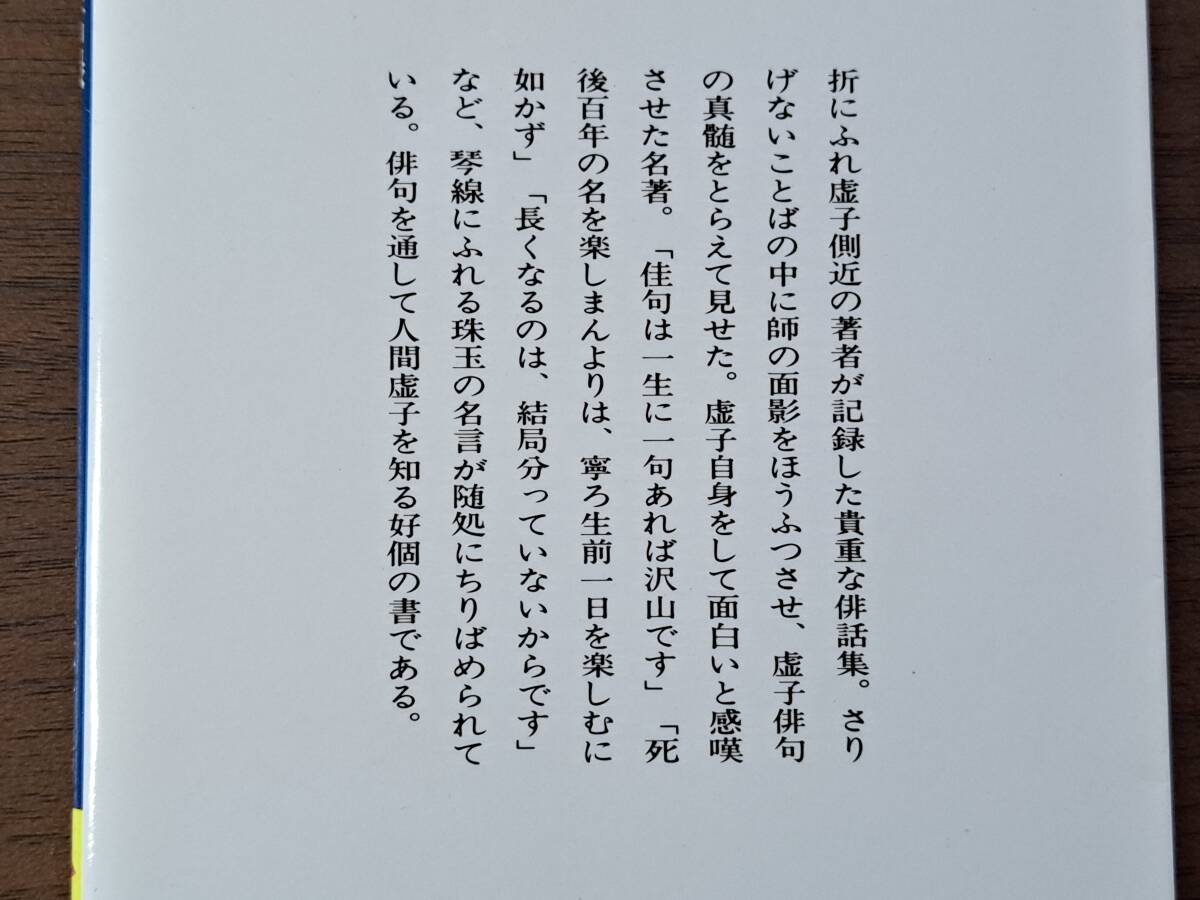 折にふれ虚子側近の著者が記録した貴重な俳話集。さり
げないことばの中に師の面影をほうふつさせ、虚子俳句
の真髄をとらえて見せた。虚子自身をして面白いと感嘆
させた名著。「佳句は一生に一句あれば沢山です」「死
後百年の名を楽しまんよりは、寧ろ生前一日を楽しむに
如かず」「長くなるのは、結局分っていないからです」
など、琴線にふれる珠玉の名言が随処にちりばめられて
いる。俳句を通して人間虚子を知る好個の書である。